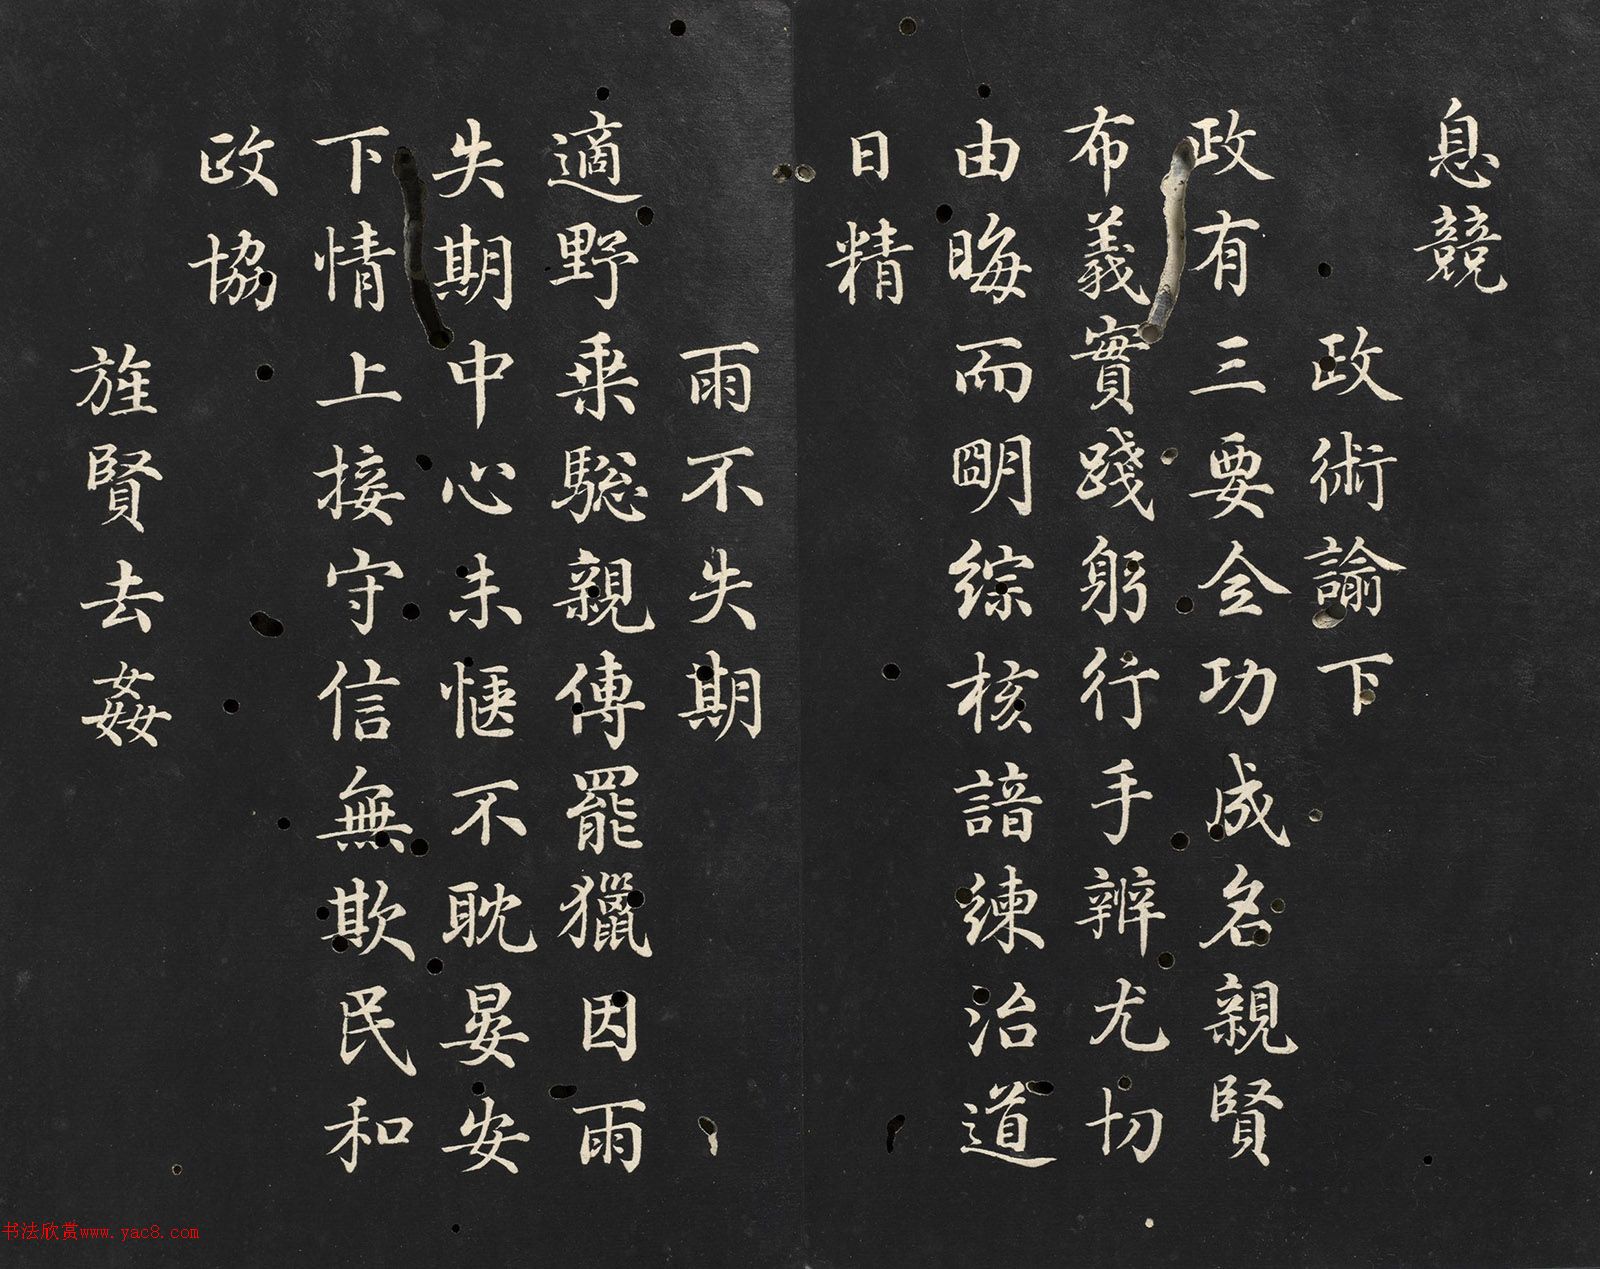 息競
政術諭下
政有三要令功成名親賢
布義實踐躬行手辨尤切
由晦而明綜核諳練治道
日精
雨不失期
適野乘驄親傳罷獵因雨
失期中心未愜不耽晏安
下情上接守信無欺民和
政協
旌賢去姦
书法欣赏www.yac8.com